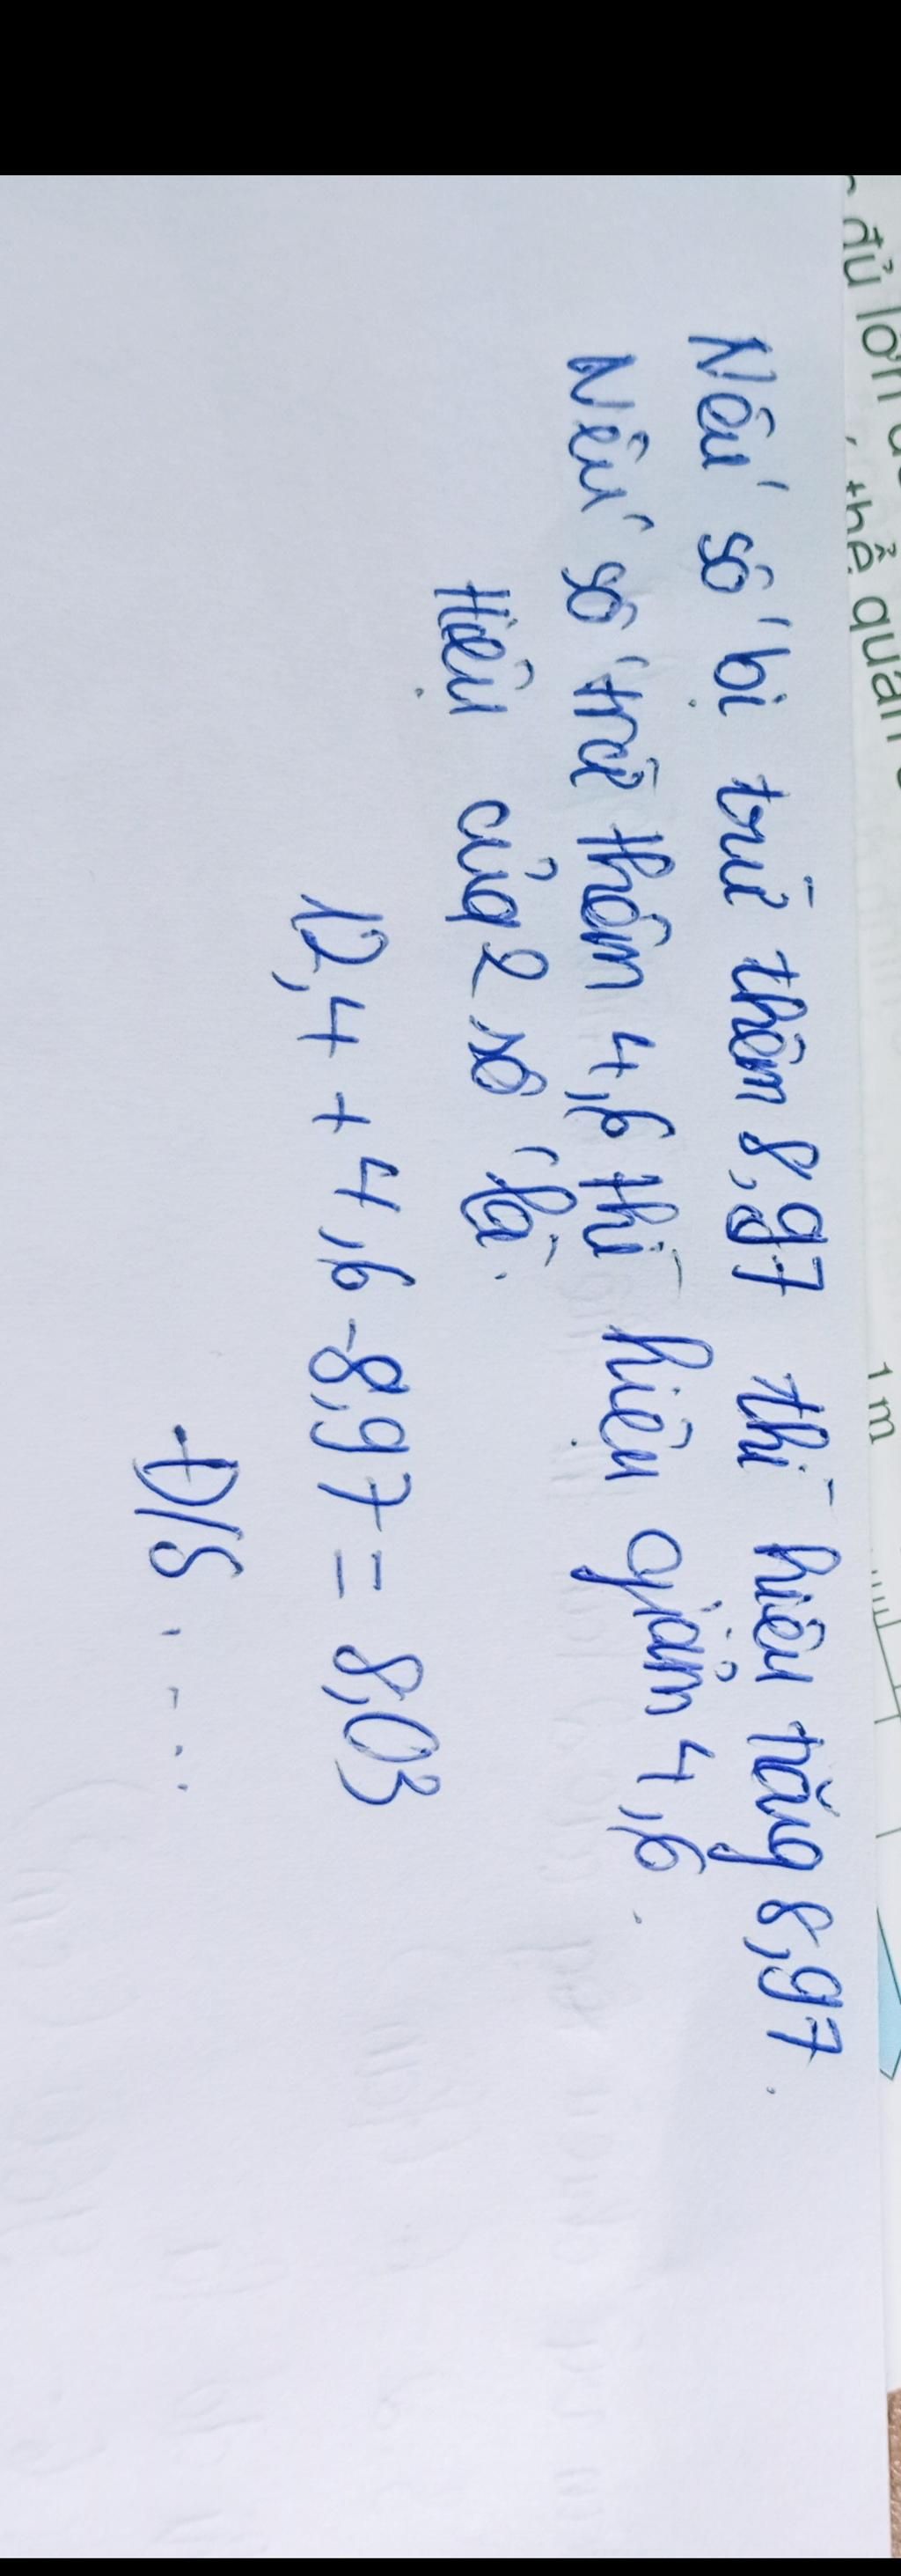 đủ lớn
thể quan
1 m
Nếu số bị trừ thêm 8,97 thì hiệu tăng 8,97.
Nếu số trừ thêm 4,6 thì hiệu giảm 4,6.
Hiệu của 2 số là:
12,4 + 4,6 - 8,97 = 8,03
Đ/S : ...